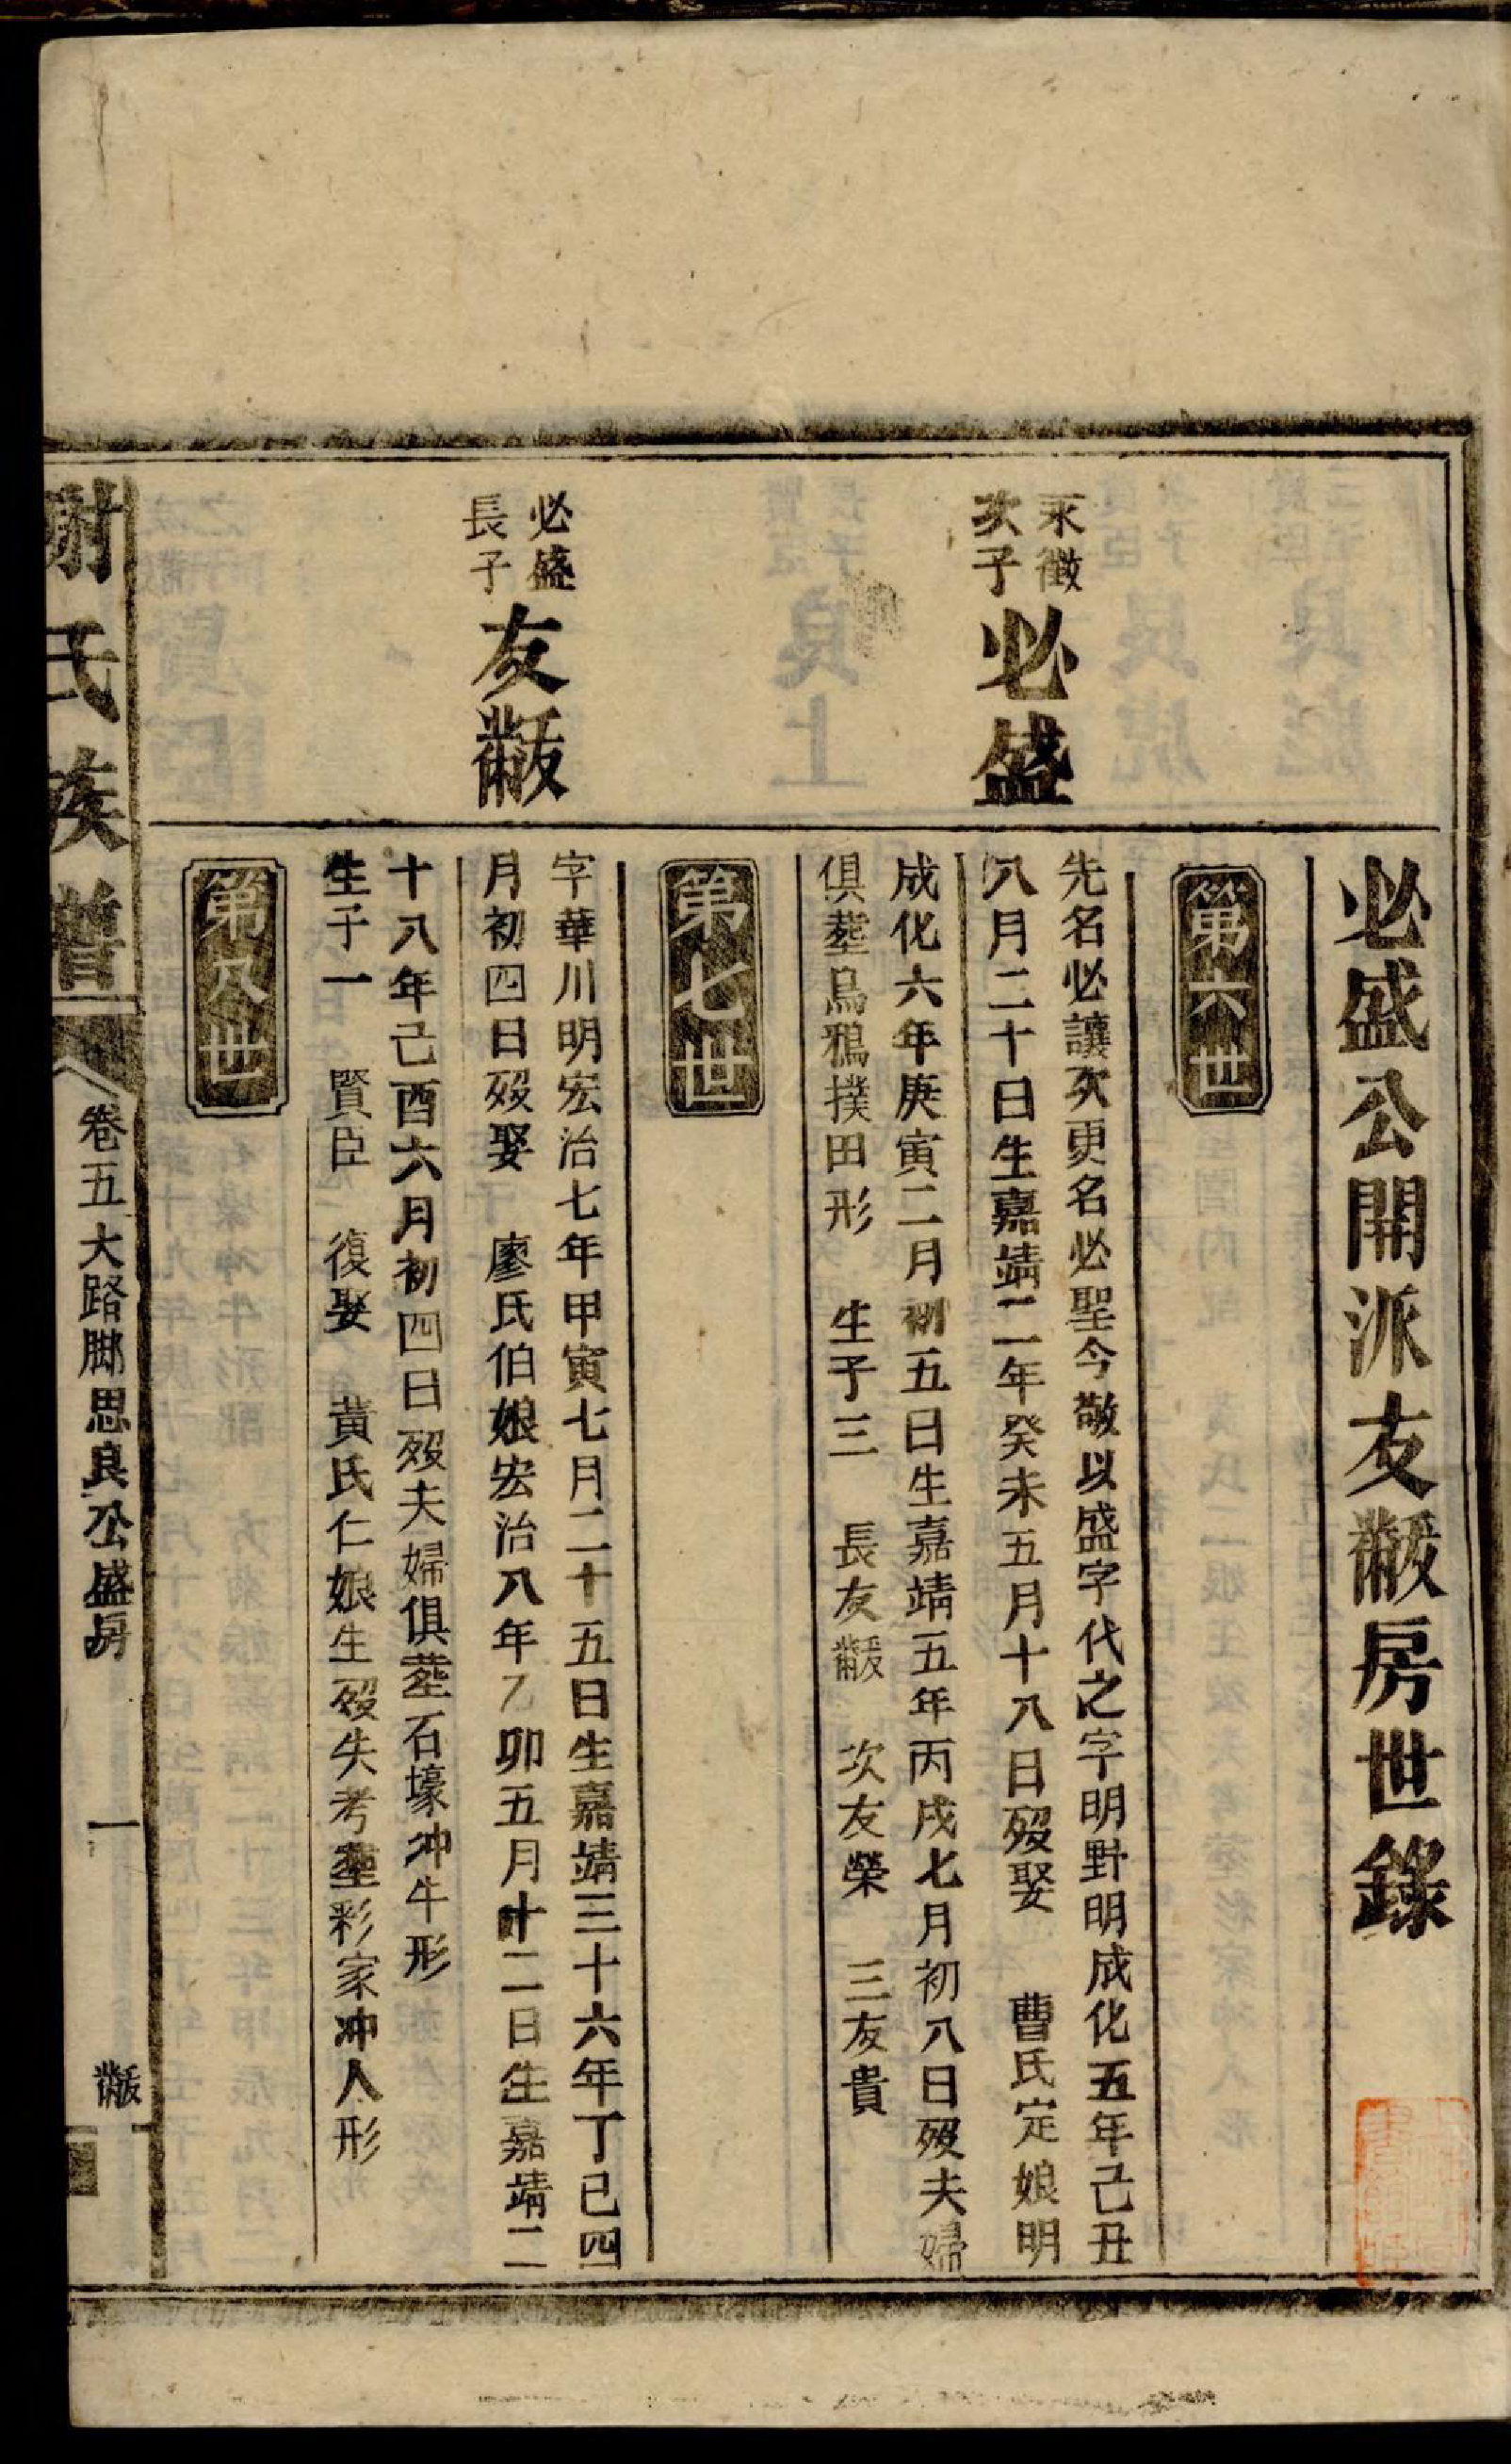 必盛公開派友黻房世錄
第六世
永徵
次子
必盛
先名必讓次更名必聖今敬以盛字代之字明野明成化五年己丑
八月二十日生嘉靖二年癸未五月十八日歿娶 曹氏定娘明
成化六年庚寅二月初五日生嘉靖五年丙戌七月初八日歿夫婦
俱塟烏鴉撲田形 生子三 長友黻 次友榮 三友貴
第七世
必盛
長子
友黻
字華川明宏治七年甲寅七月二十五日生嘉靖三十六年丁巳四
月初四日歿娶 廖氏伯娘宏治八年乙卯五月十二日生嘉靖二
十八年己酉六月初四日歿夫婦俱塟石壕沖牛形
生子一 賢臣 復娶 黃氏仁娘生歿失考塟彩家沖人形
第八世
謝氏族譜
卷五大路腳思良公盛房
一
黻